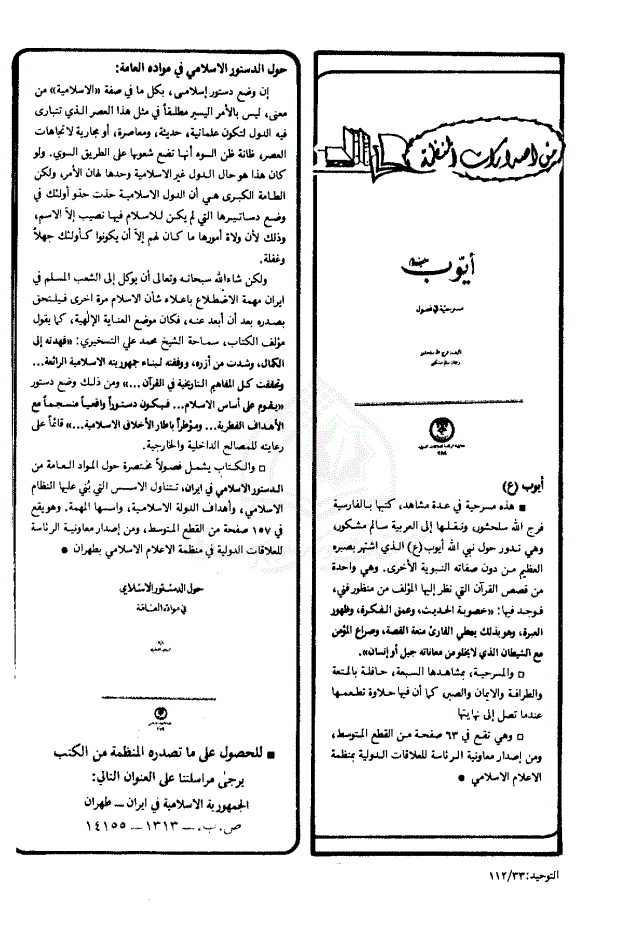 من اصدارات المنظمة
أيوب
مسرحية في فصول
أيوب (ع)
■ هذه مسرحية في عدة مشاهد، كتبها بالفارسية
فرج الله سلحشور، ونقلها إلى العربية سالم مشكور،
وهي تدور حول نبي الله أيوب(ع) الذي اشتهر بصبره
العظيم من دون صفاته النبوية الأخرى. وهي واحدة
من قصص القرآن التي نظر إليها المؤلف من منظور فني،
فوجد فيها: «خصوبة الحديث، وعمق الفكرة، وظهور
العبرة، وهو بذلك يعطي القارئ متعة القصة، وصراع المؤمن
مع الشيطان الذي لا يخلو من معاناته جيل أو إنسان».
□ والمسرحية، بمشاهدها السبعة، حافلة بالمتعة
والطرافة والايمان والصبر، كما أن فيها حلاوة تطعمها
عندما تصل إلى نهايتها
□ وهي تقع في ٦٣ صفحة من القطع المتوسط،
ومن إصدار معاونية الرئاسة للعلاقات الدولية بمنظمة
الاعلام الاسلامي ●
حول الدستور الاسلامي في مواده العامة:
إن وضع دستور إسلامي، بكل ما في صفة «الاسلامية» من
معنى، ليس بالأمر اليسير مطلقاً في مثل هذا العصر الذي تتبارى
فيه الدول لتكون علمانية، حديثة، ومعاصرة، أو مجارية لاتجاهات
العصر، ظانة ظن السوء أنها تضع شعوبها على الطريق السوي. ولو
كان هذا هو حال الدول غير الاسلامية وحدها لهان الأمر، ولكن
الطامة الكبرى هي أن الدول الاسلامية حذت حذو أولئك في
وضع دساتيرها التي لم يكن للاسلام فيها نصيب إلاّ الاسم،
وذلك لأن ولاة أمورها ما كان لهم إلاّ أن يكونوا كأولئك جهلاً
وغفلة.
ولكن شاء الله سبحانه وتعالى أن يوكل إلى الشعب المسلم في
ايران مهمة الاضطلاع باعلاء شأن الاسلام مرة اخرى فيلتحق
بصدره بعد أن أبعد عنه، فكان موضع العناية الإلهية، كما يقول
مؤلف الكتاب، سماحة الشيخ محمد علي التسخيري: «فهدته إلى
الكمال، وشدت من أزره، ووفقته لبناء جمهوريته الاسلامية الرائعة...
وتحققت كل المفاهيم التاريخية في القرآن...» ومن ذلك وضع دستور
«يقوم على أساس الاسلام... فيكون دستوراً واقعياً منسجماً مع
الأهداف الفطرية... ومؤطراً باطار الأخلاق الاسلامية...» قائماً على
رعايته للمصالح الداخلية والخارجية.
□ والكتاب يشمل فصولاً مختصرة حول المواد العامة من
الدستور الاسلامي في ايران، تتناول الاسس التي بُني عليها النظام
الاسلامي، وأهداف الدولة الاسلامية، واسسها المهمة. وهو يقع
في ١٥٧ صفحة من القطع المتوسط، ومن إصدار معاونية الرئاسة
للعلاقات الدولية في منظمة الاعلام الاسلامي بطهران ●
حول الدستور الاسلامي
في مواده العامة
■ للحصول على ما تصدره المنظمة من الكتب
يرجى مراسلتنا على العنوان التالي:
الجمهورية الاسلامية في ايران ــ طهران
ص.ب. ــ ١٣١٣ ــ ١٤١٥٥
التوحيد:١١٢/٣٣